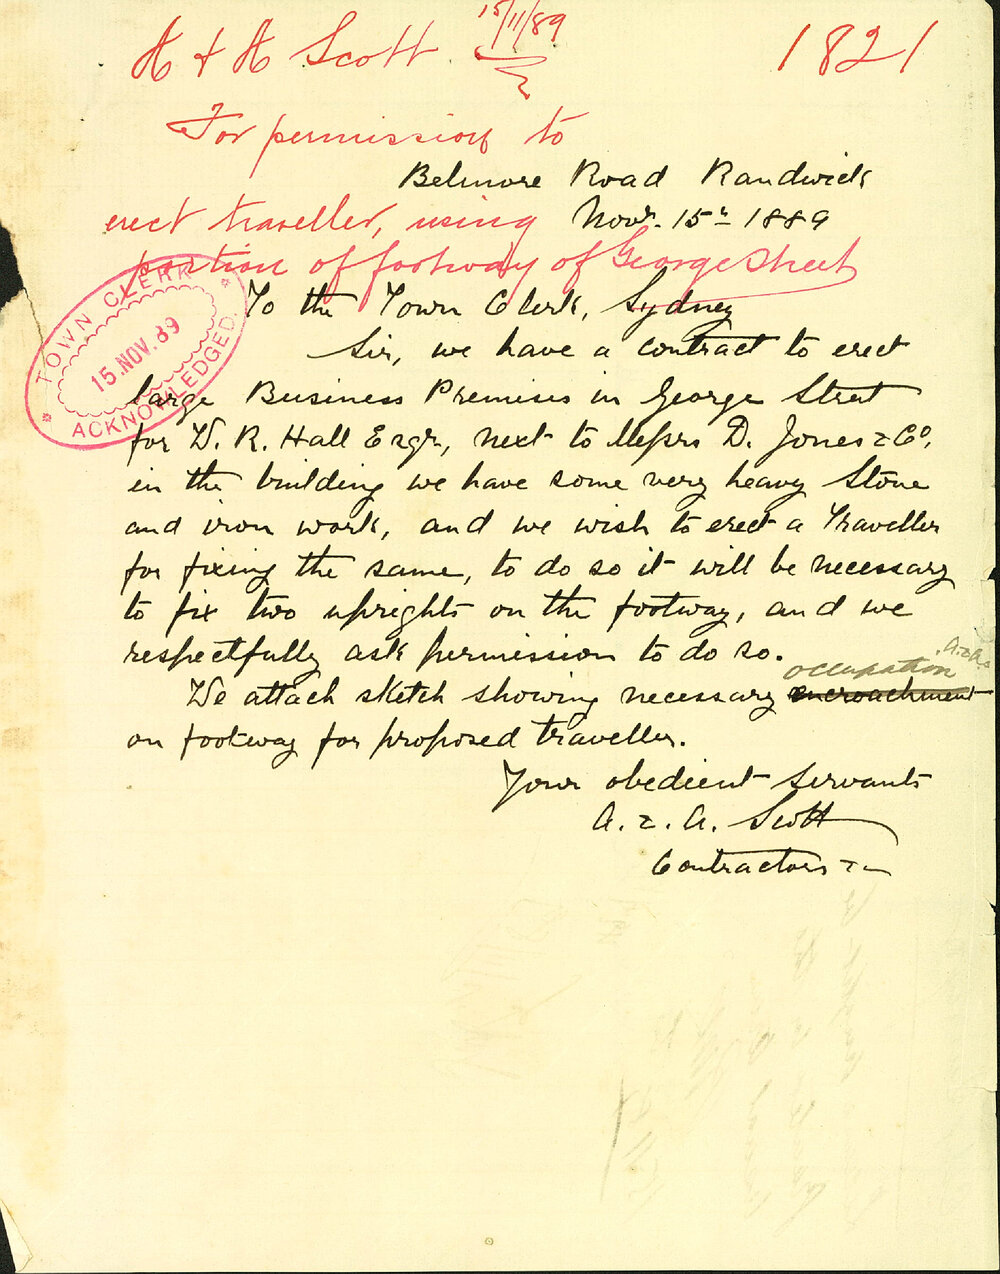 A & A Scott 15/11/89
1821
For permission to
Belmore Road Randwick
erect traveller, using
Novr. 15th 1889
portion of footway of George Street
TOWN CLERK
15 NOV. 89
ACKNOWLEDGED.
To the Town Clerk, Sydney
Sir, we have a contract to erect
large Business Premises in George Street
for W. R. Hall Esqr, next to Messrs D. Jones & Co,
in the building we have some very heavy Stone
and iron work, and we wish to erect a Traveller
for fixing the same, to do so it will be necessary
to fix two uprights on the footway, and we
respectfully ask permission to do so.
occupation A.&A.S
We attach sketch showing necessary encroachment
on footway for proposed traveller.
Your obedient Servants
A. & A. Scott
Contractors